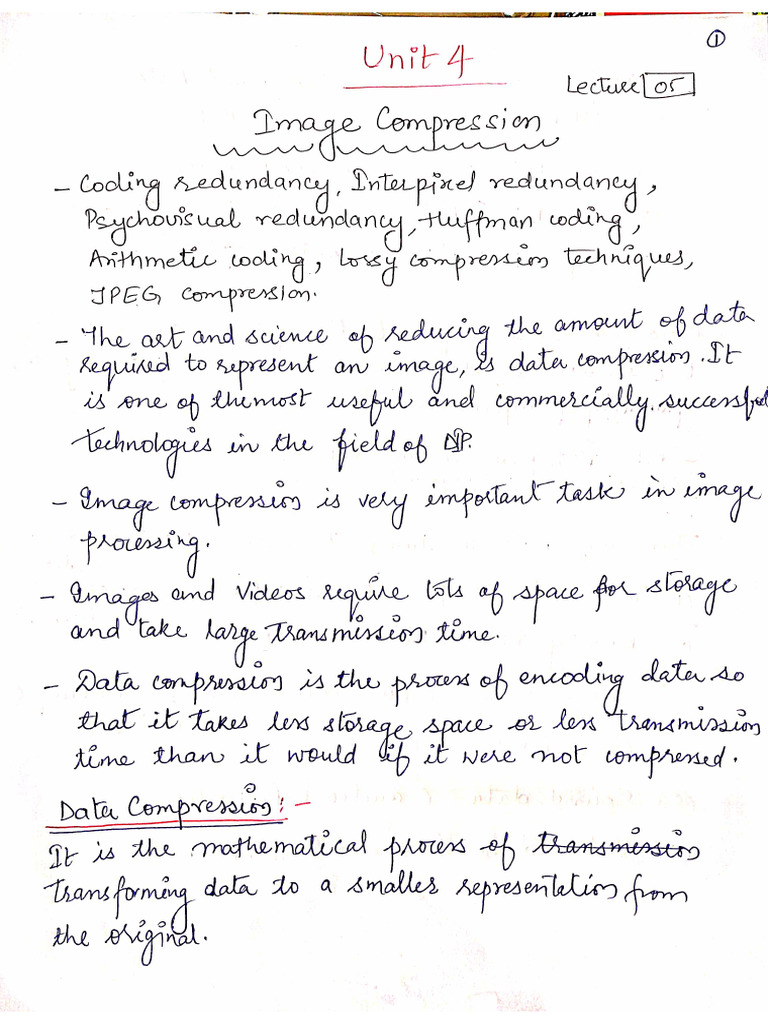 ①
Unit 4
Lecture 05
Image Compression
- Coding redundancy, Interpixel redundancy,
Psychovisual redundancy, Huffman coding,
Arithmetic coding, Lossy compression techniques,
JPEG compression.
- The art and science of reducing the amount of data
required to represent an image, is data compression. It
is one of the most useful and commercially successful
technologies in the field of DIP.
- Image compression is very important task in image
processing.
- Images and Videos require lots of space for storage
and take large transmission time.
- Data compression is the process of encoding data so
that it takes less storage space or less transmission
time than it would if it were not compressed.
Data Compression: -
It is the mathematical process of transmission
transforming data to a smaller representation from
the original.